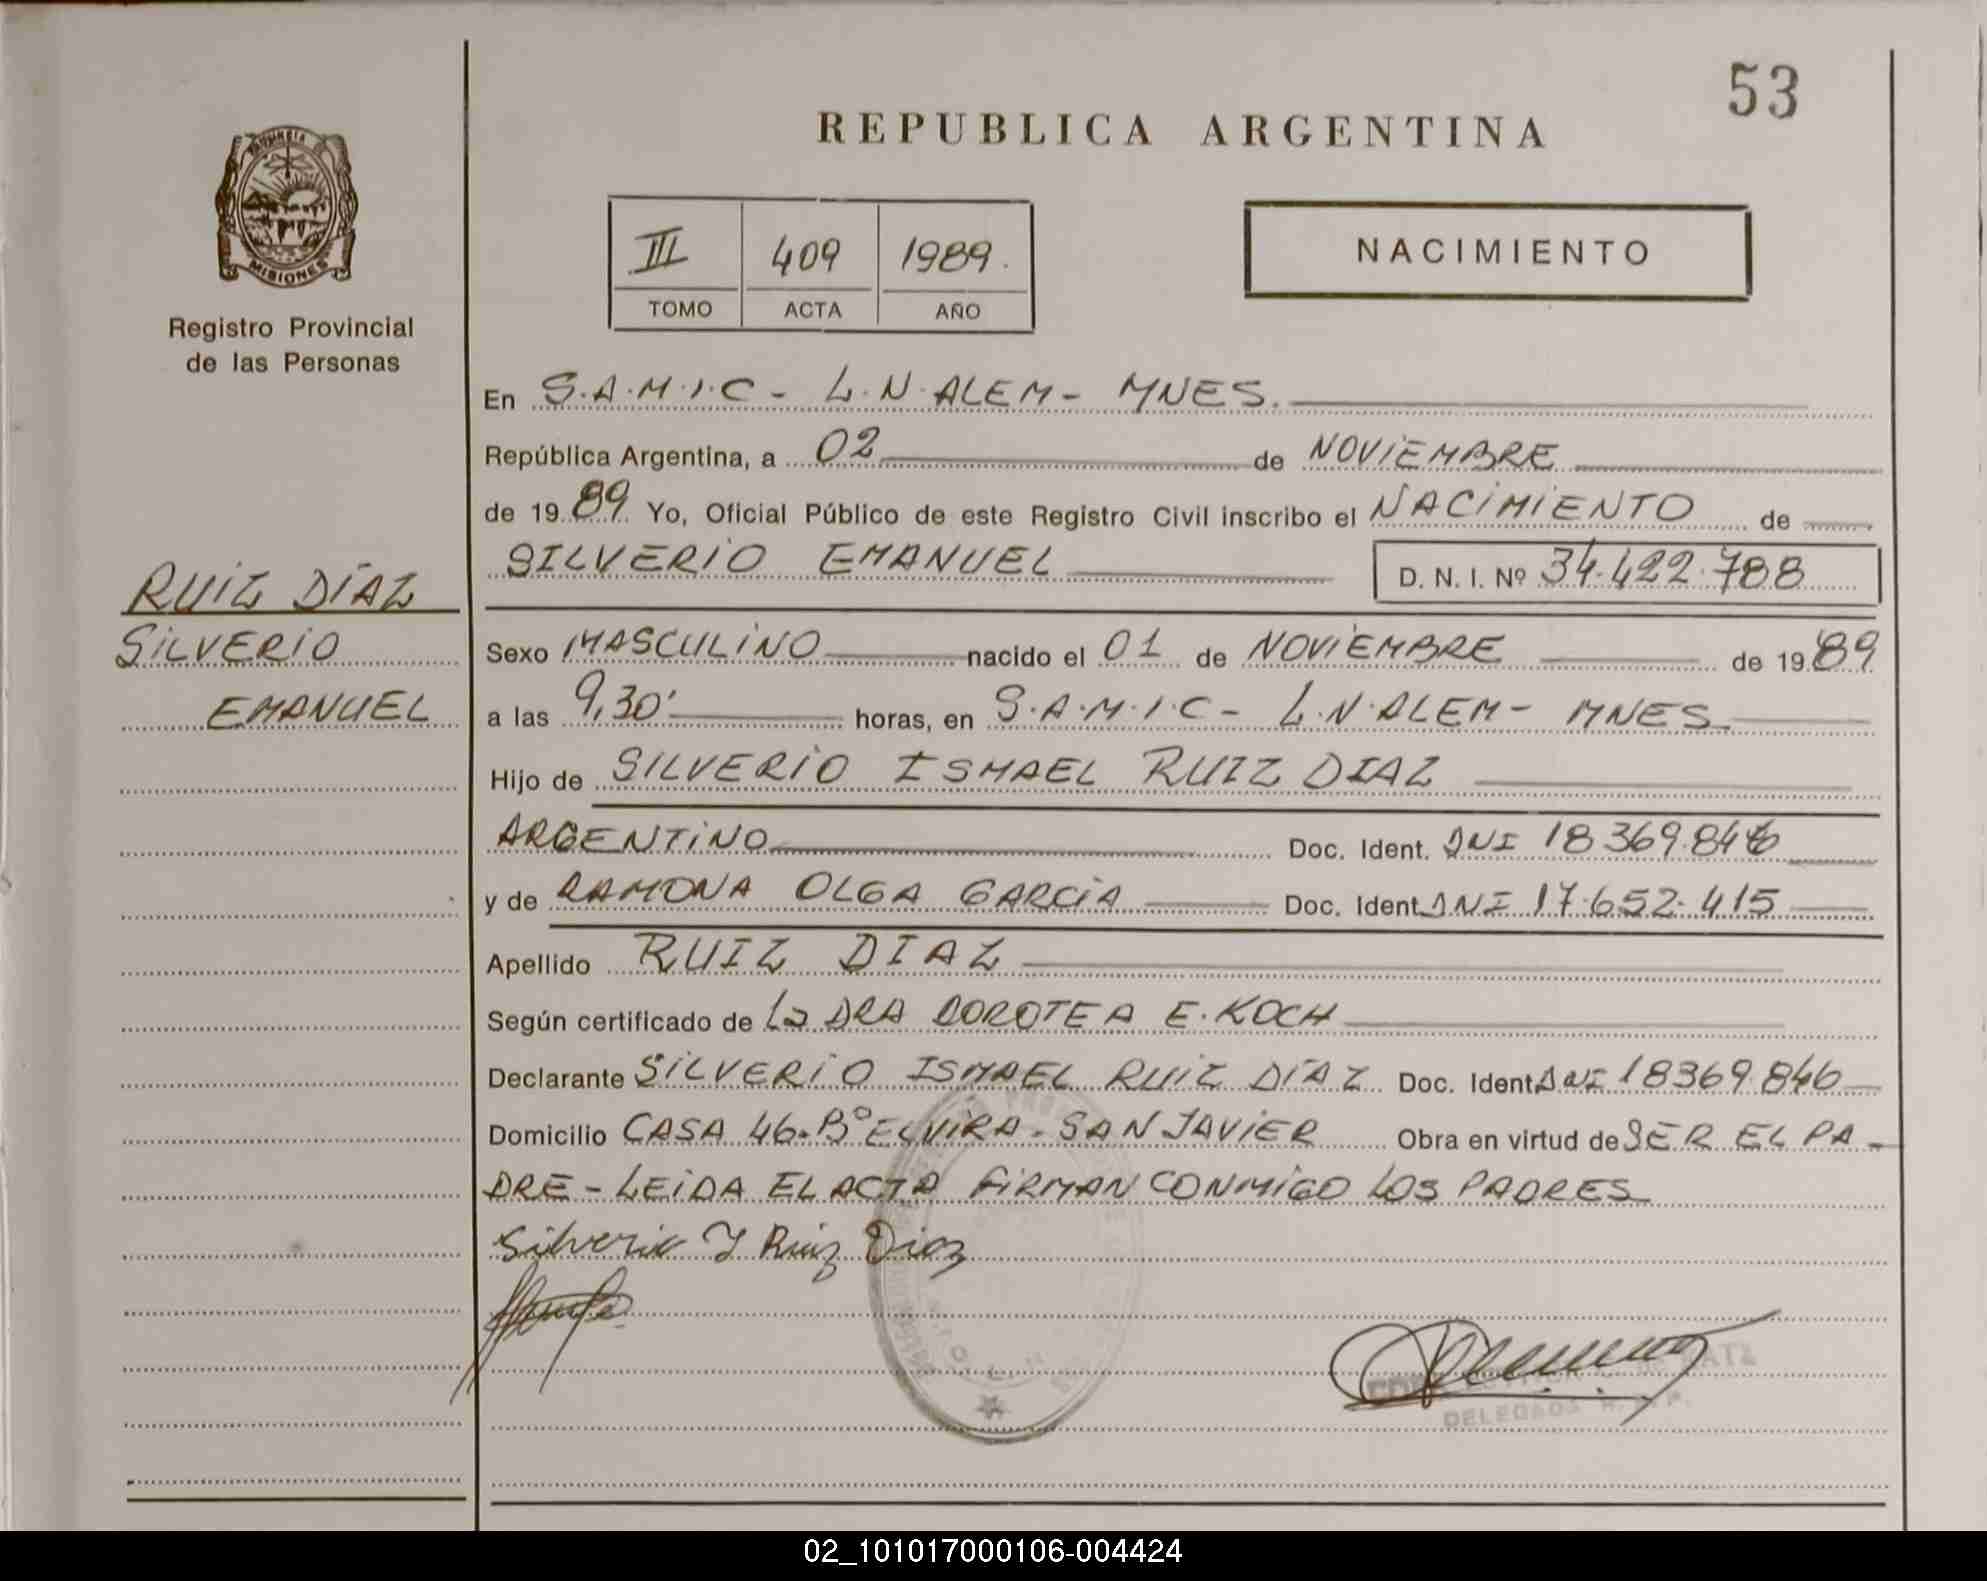 53
REPUBLICA ARGENTINA
PROVINCIA
MISIONES
Registro Provincial
de las Personas
III 409 1989.
TOMO ACTA AÑO
NACIMIENTO
En S.A.M.I.C - L.N.ALEM- MNES.
República Argentina, a 02 de NOVIEMBRE
de 1989 Yo, Oficial Público de este Registro Civil inscribo el NACIMIENTO de
SILVERIO EMANUEL D. N. I. Nº 34.422.788
RUIZ DÍAZ
SILVERIO
EMANUEL
Sexo MASCULINO nacido el 01 de NOVIEMBRE de 1989
a las 9,30' horas, en S.A.M.I.C - L.N.ALEM- MNES
Hijo de SILVERIO ISMAEL RUIZ DIAZ
ARGENTINO Doc. Ident. DNI 18369.846
y de RAMONA OLGA GARCIA Doc. Ident DNI 17.652.415
Apellido RUIZ DIAZ
Según certificado de La DRA DOROTEA E. KOCH
Declarante SILVERIO ISMAEL RUIZ DÍAZ Doc. Ident DNI 18369.846
Domicilio CASA 46-Bº ELVIRA - SAN JAVIER Obra en virtud de SER EL PA-
DRE - LEIDA EL ACTA FIRMAN CONMIGO LOS PADRES
Silverio I Ruiz Diaz
DELEGADA R. P. P.
02_101017000106-004424